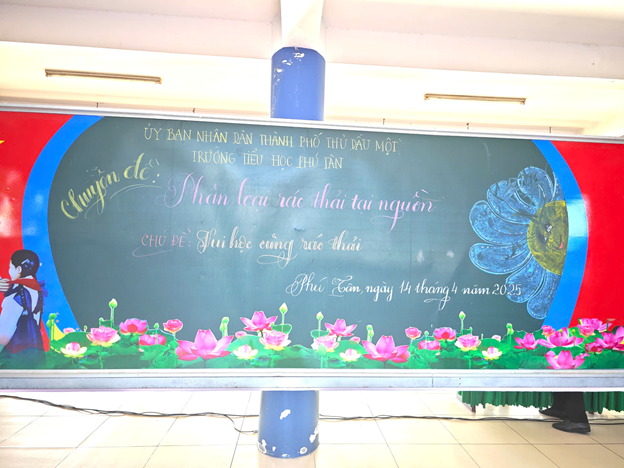 ỦY BAN NHÂN DÂN THÀNH PHỐ THỦ DẦU MỘT
TRƯỜNG TIỂU HỌC PHÚ TÂN
Chuyên đề:
Phân loại rác thải tại nguồn
CHỦ ĐỀ: Vui học cùng rác thải
Phú Tân, ngày 14 tháng 4 năm 2025